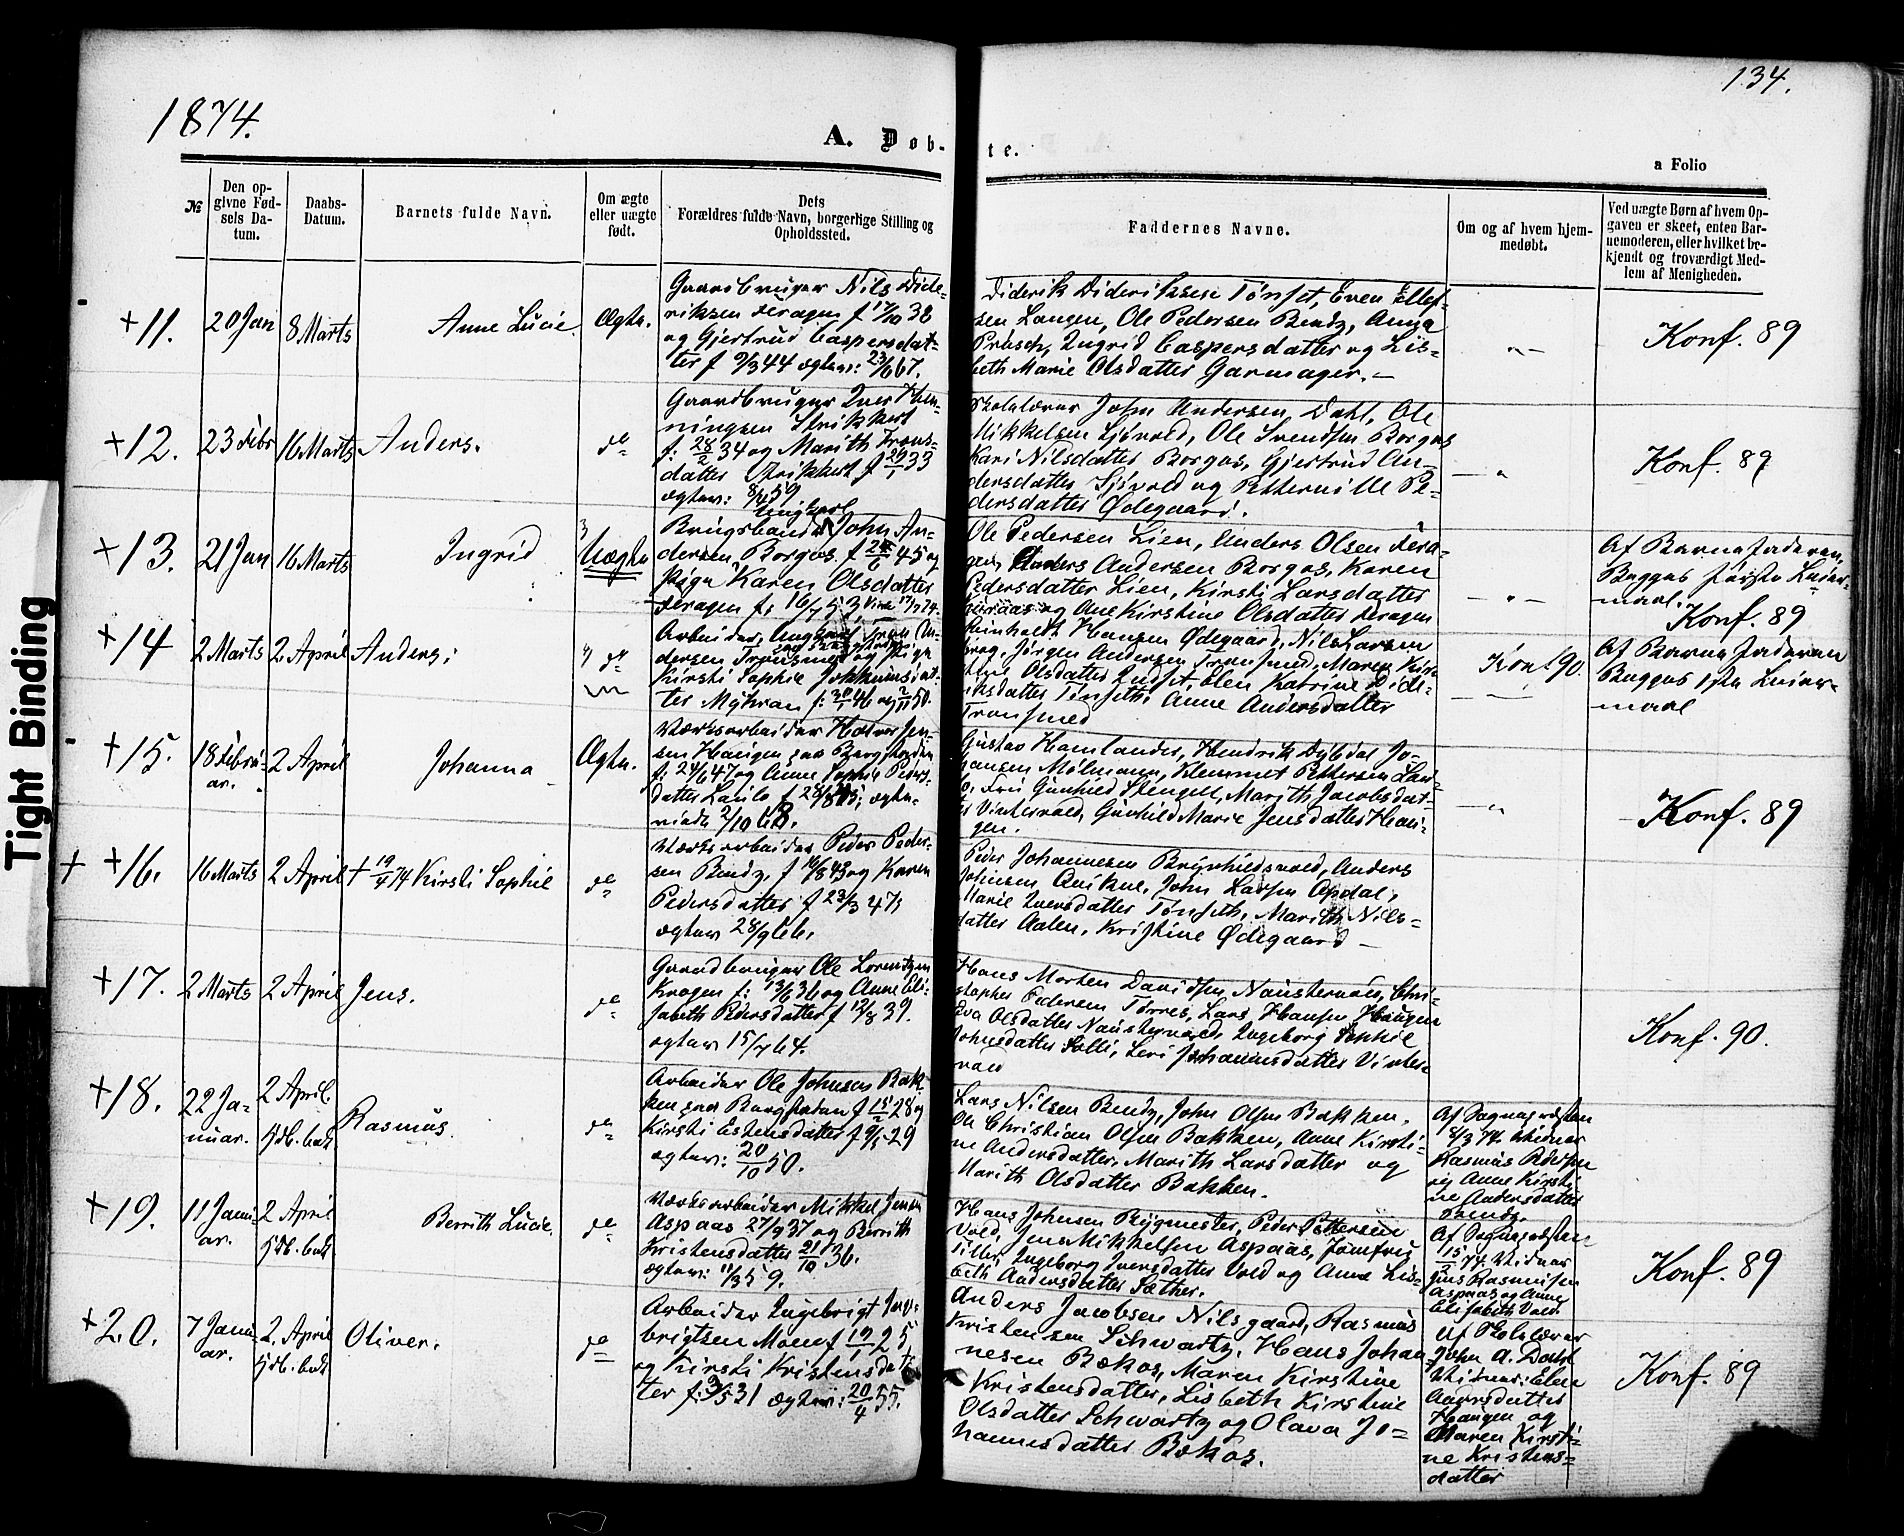 134.
1874.
A. Døb-
te.
a Folio
№
Den op-
givne Fød-
sels Da-
tum.
Daabs-
Datum.
Barnets fulde Navn.
Om ægte
eller uægte
født.
Dets
Forældres fulde Navn, borgerlige Stilling og
Opholdssted.
Faddernes Navne.
Om og af hvem hjem-
medøbt.
Ved uægte Børn af hvem Op-
gaven er skeet, enten Bar-
nemoderen, eller hvilket be-
kjendt og troværdigt Med-
lem af Menigheden.
+11. 20 Jan 8 Marts Anne Lucie Ægte.
Gaardbruger Nils Dide-
riksen f 17/10 38
og Gjertrud Caspersdat-
ter f 9/3 44 ægtev: 23/6 67.
Diderik Dideriksen Tønset, Even Ellef-
sen Langen, Ole Pedersen Bendz, Anna
Prøsch, Ingrid Caspersdatter og Lis-
beth Marie Olsdatter Garmager.—
Konf. 89
+12. 23 Febr 16 Marts Anders. do
Gaardbruger Iver Hen-
ningsen
f: 28/2 34 og Marith Trons-
datter f 29/1 33
ægtev: 8/4 59
Skolelærer John Andersen Dahl, Ole
Mikkelsen Sjøvold, Ole Svendsen Borgos
Kari Nilsdatter Borgos, Gjertrud An-
dersdatter Sjøvold og Petternille Pe-
dersdatter Ødegaard.
Konf. 89
+13. 21 Jan 16 Marts Ingrid Uægte
Ungkarl
John An-
dersen Borgos f 45 og
Pige Karen Olsdatter
f: 16/7 53
Ole Pedersen Lien, Anders Olsen
Anders Andersen Borgos, Karen
Pedersdatter Lien, Kirsti Larsdatter
og Ane Kirstine Olsdatter
Af Barnefaderen,
Begges første Leier-
maal.
Konf. 89
+14 2 Marts 2 April Anders: do
Arbeider, Ungkarl An-
dersen Tronsmed og Pige
Kirsti Sophie Johannesdat-
ter Myhran f: 46 og 50.
Reinholdt Hansen Ødegaard, Nils Larsen
Jørgen Andersen Tronsmed, Maren Kirs-
tine Olsdatter Elen Katrine Dide-
riksdatter Tønseth, Anne Andersdatter
Tronsmed
Konf 90.
Af Barnefaderen
Begges 1ste Leier-
maal
+15. 18 Febru-
ar. 2 April Johanna Ægte.
Værksarbeider Halvor Jen-
sen Haugen paa Bergstaden
f: 24/6 47 og Anne Sophie Peders-
datter
viede 2/10 68.
Gustav Hamlander, Hendrik Dybdal Jo-
hansen Mølmann, Klemmet Pettersen
Gunhild Stengel, Marith Jacobsdat-
ter Vintervold, Gunhild Marie Jensdatter Hau-
gen.
Konf. 89
+ +16. 16 Marts 2 April + 19/4 74 Kirsti Sophie do
Værksarbeider Peder Peder-
sen Bendz, f og Karen
Pedersdatter f 22/3 47,
ægtev 28/9 66,
Peder Johannesen Brynhildsvold, Anders
Johnsen John Larsen Opdal,
Marie Iversdatter Tønseth, Marith Nils-
datter Aalen, Kristine Ødegaard —
+17. 2 Marts 2 April Jens. do
Gaardbruger Ole Lorentzen
Kragen f: 13/6 36 og Anne Eli-
sabeth Pedersdatter f 12/8 39.
ægtev 15/7 64.
Hans Morten Davidsen, Naustervold, Chri-
stopher Pedersen Tørres, Lars Hansen Haugen
Eva Olsdatter Naustervold, Ingeborg Sophie
Johnsdatter Leri Johannesdatter Vinter-
vold
Konf. 90.
+18. 22 Ja-
nuar. 2 April.
hjdb. bek Rasmus. do
Arbeider Ole Johnsen Bak-
ken paa Bergstaden f 28 og
Kirsti Estensdatter f 29
ægtev: 20/10 50.
Lars Nilsen Bendz, John Olsen Bakken,
Ole Christian Olsen Bakken, Anne Kirsti-
ne Andersdatter, Marith Larsdatter og
Marith Olsdatter Bakken.
Af Sognepræsten
4/3 74. Vidner
Rasmus Pedersen
og Anne Kirsti-
ne Andersdatter
Bendz.
+19. 11 Janu-
ar. 2 April
hjdb. bek Berrith Lucie. do
Værksarbeider Mikkel Jensen
Aspaas 27/9 37 og Berrith
Kristensdatter 21/10 36.
ægtev: 11/3 59.
Hans Johnsen Bygmester, Peder Pettersen
Vold, Jens Mikkelsen Aspaas, Jomfru
Tiller, Ingeborg Iversdatter Vold og Anne Lis-
beth Andersdatter Sæther.
Af Sognepræsten
15/2 74. Vidner
Jens Rasmussen
Aspaas og Anne
Elisabeth Vold
Konf. 89
+20. 7 Janu-
ar. 2. April
hjdb. bek Oliver. do
Arbeider Ingebrigt Inge-
brigtsen Moen f 19/1 25
og Kirsti Kristensdat-
ter f 31 ægtev: 20/4 55.
Anders Jacobsen Nilsgaard, Rasmus
Kristensen Schwartz, Hans Johan-
nesen Bækos, Maren Kirstine
Kristensdatter, Lisbeth Kirstine
Olsdatter Schwartz og Olava Jo-
hannesdatter Bækos.
Af Skolelærer
John A. Dahl
Vidner: Elen
Andersdatter
Haugen og
Maren Kirsti-
ne Kristens-
datter
Konf. 89
Tight Binding